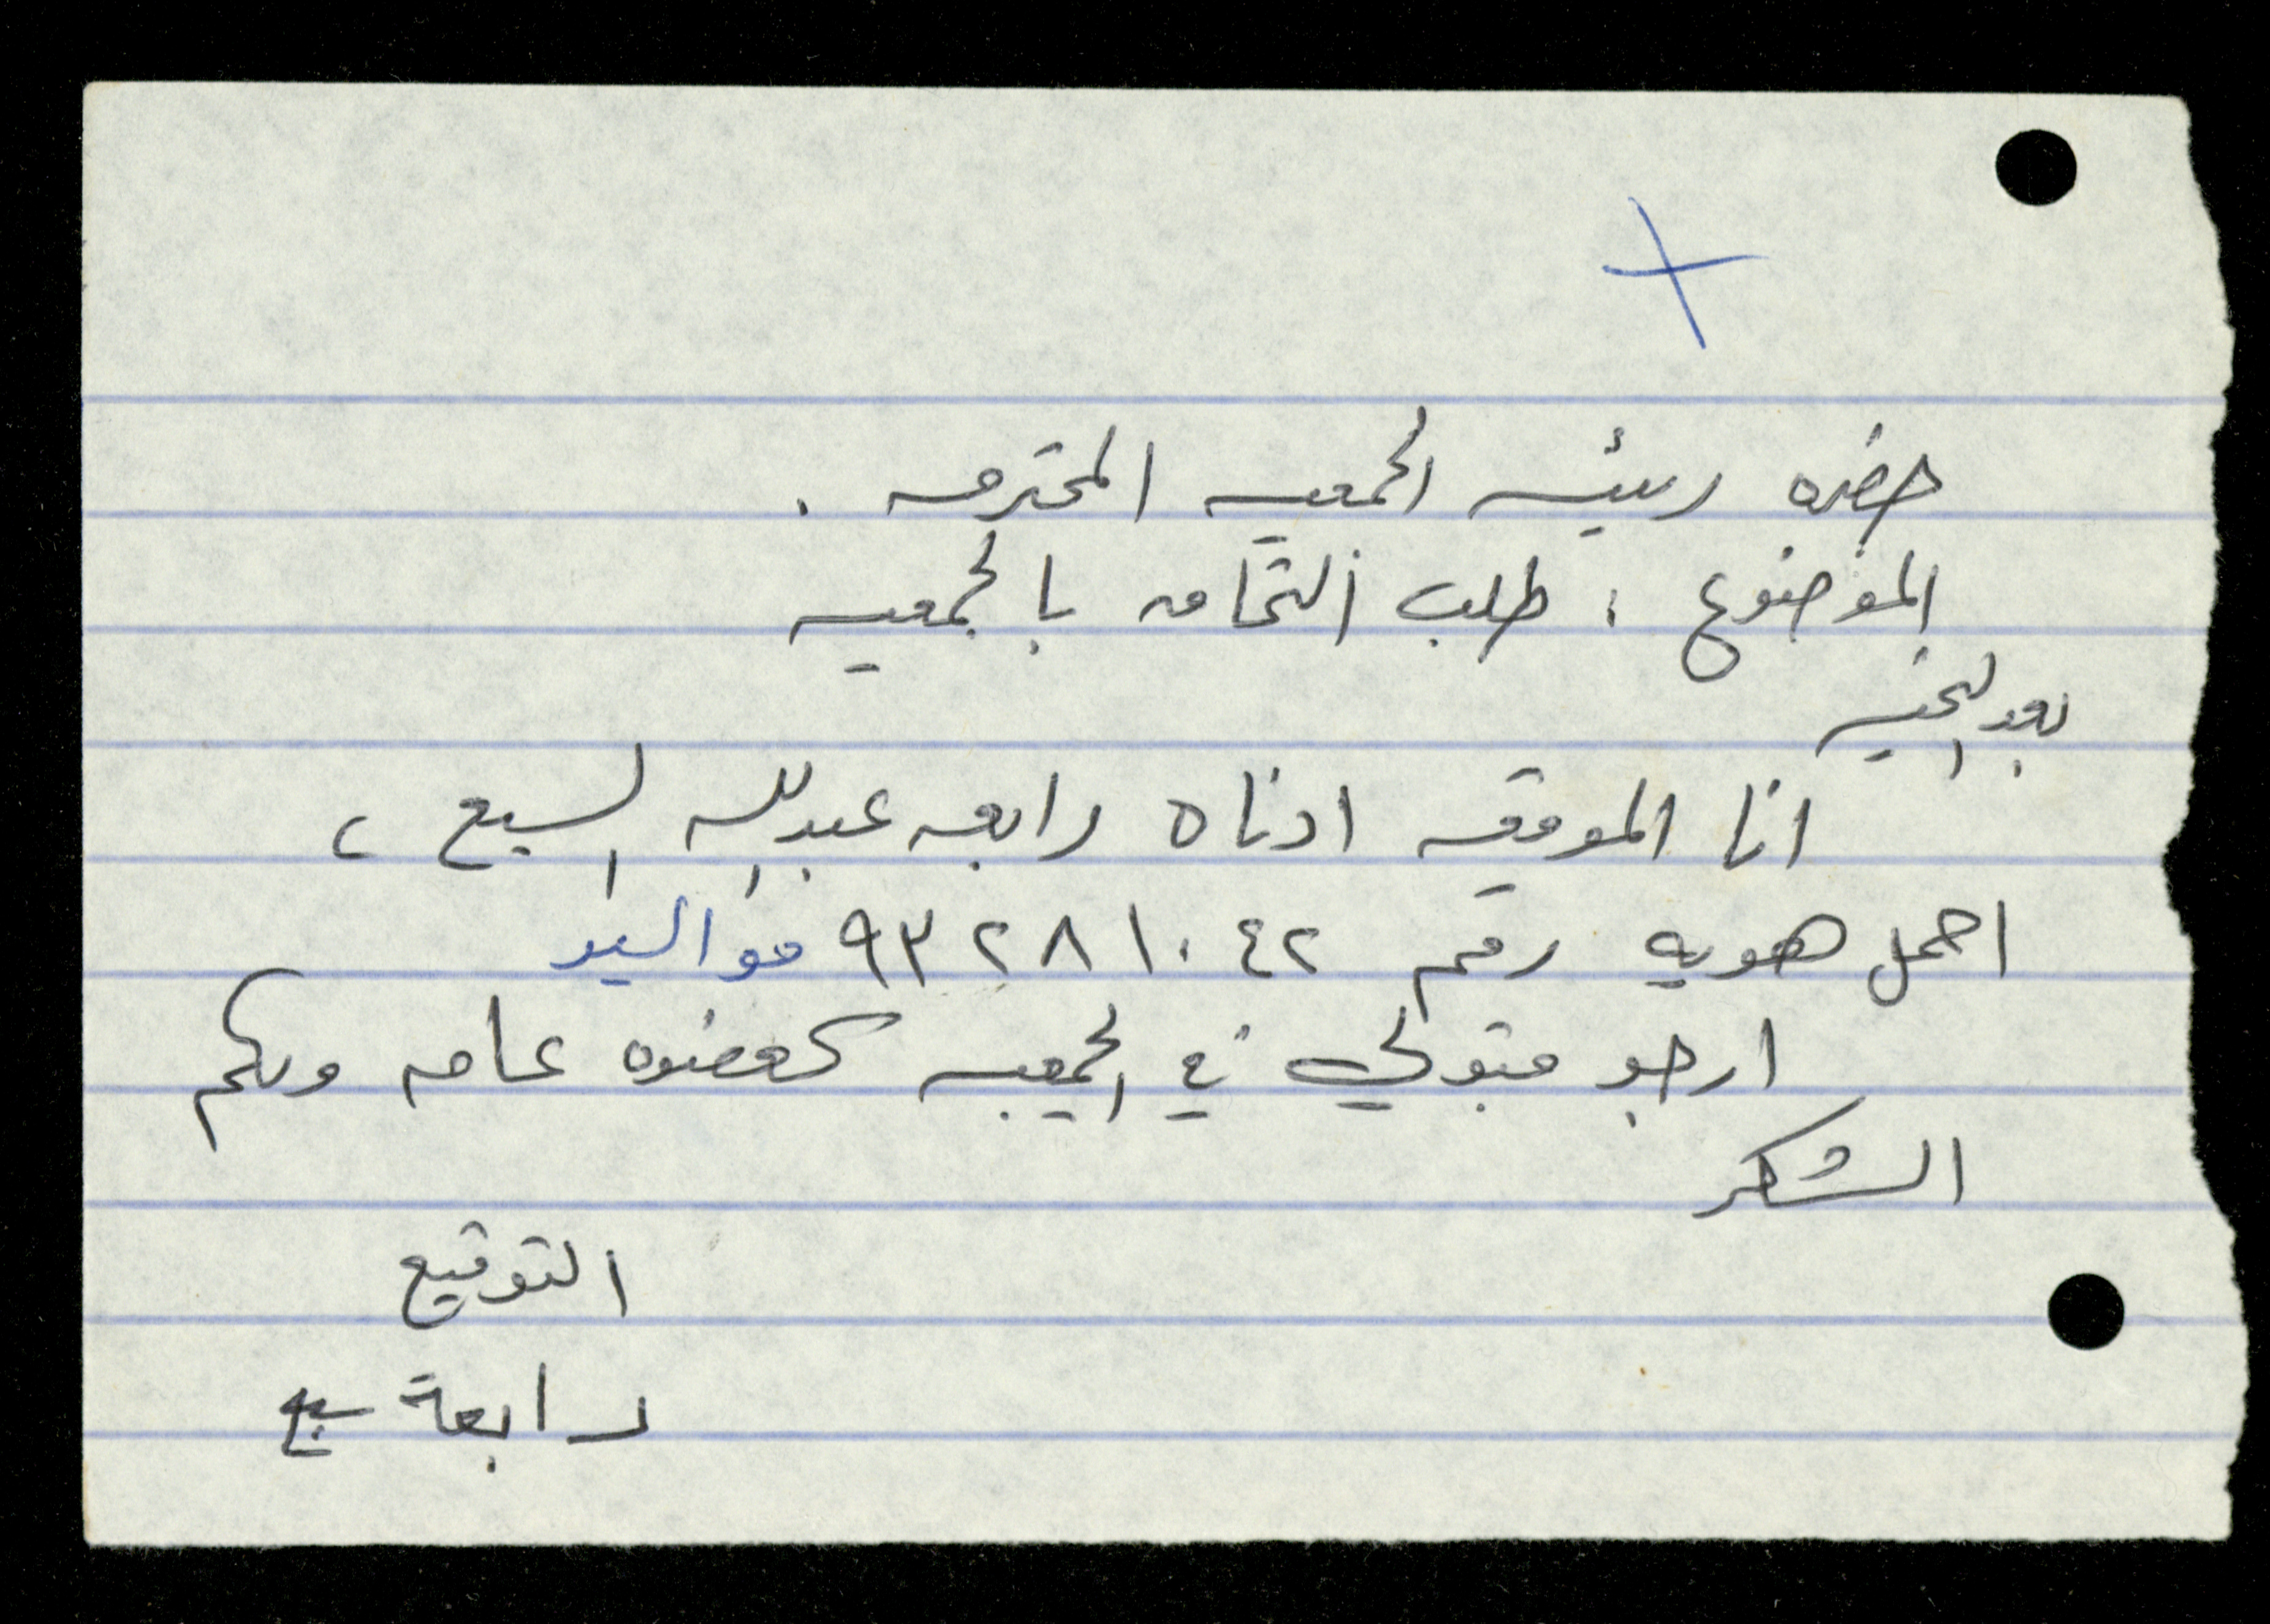 حضره رئيسه الجمعيه المحترمه .
الموضوع : طلب التحاق بالجمعيه
بعد التحيه
انا الموقعه ادناه رابعه عبد الله السبع ،
احمل هويه رقم ٩٣٢٨١٠٤٢ مواليد
ارجو قبولي في الجمعيه كعضوه عامه ولكم
الشكر
التوقيع
رابعة سبع